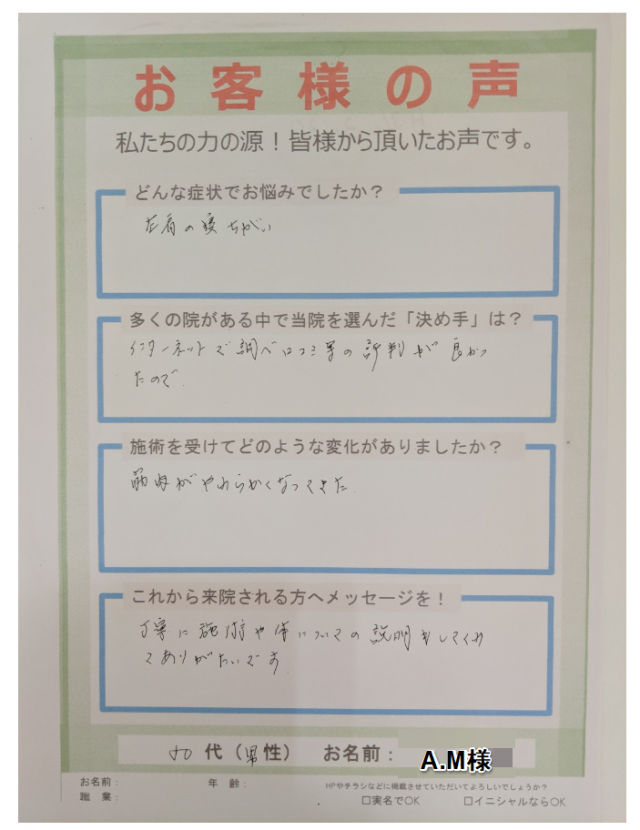 お客様の声
私たちの力の源！皆様から頂いたお声です。
どんな症状でお悩みでしたか？
左肩の寝ちがい
多くの院がある中で当院を選んだ「決め手」は？
インターネットで調べ口コミ等の評判が良かっ
たので
施術を受けてどのような変化がありましたか？
筋肉がやわらかくなってきた.
これから来院される方へメッセージを！
丁寧に施術や体についての説明をしてくれ
てありがたいです
代（男性） お名前：A.M様
お名前： 年齢： HPやチラシなどに掲載させていただいてよろしいでしょうか？
職業： □実名でOK □イニシャルならOK